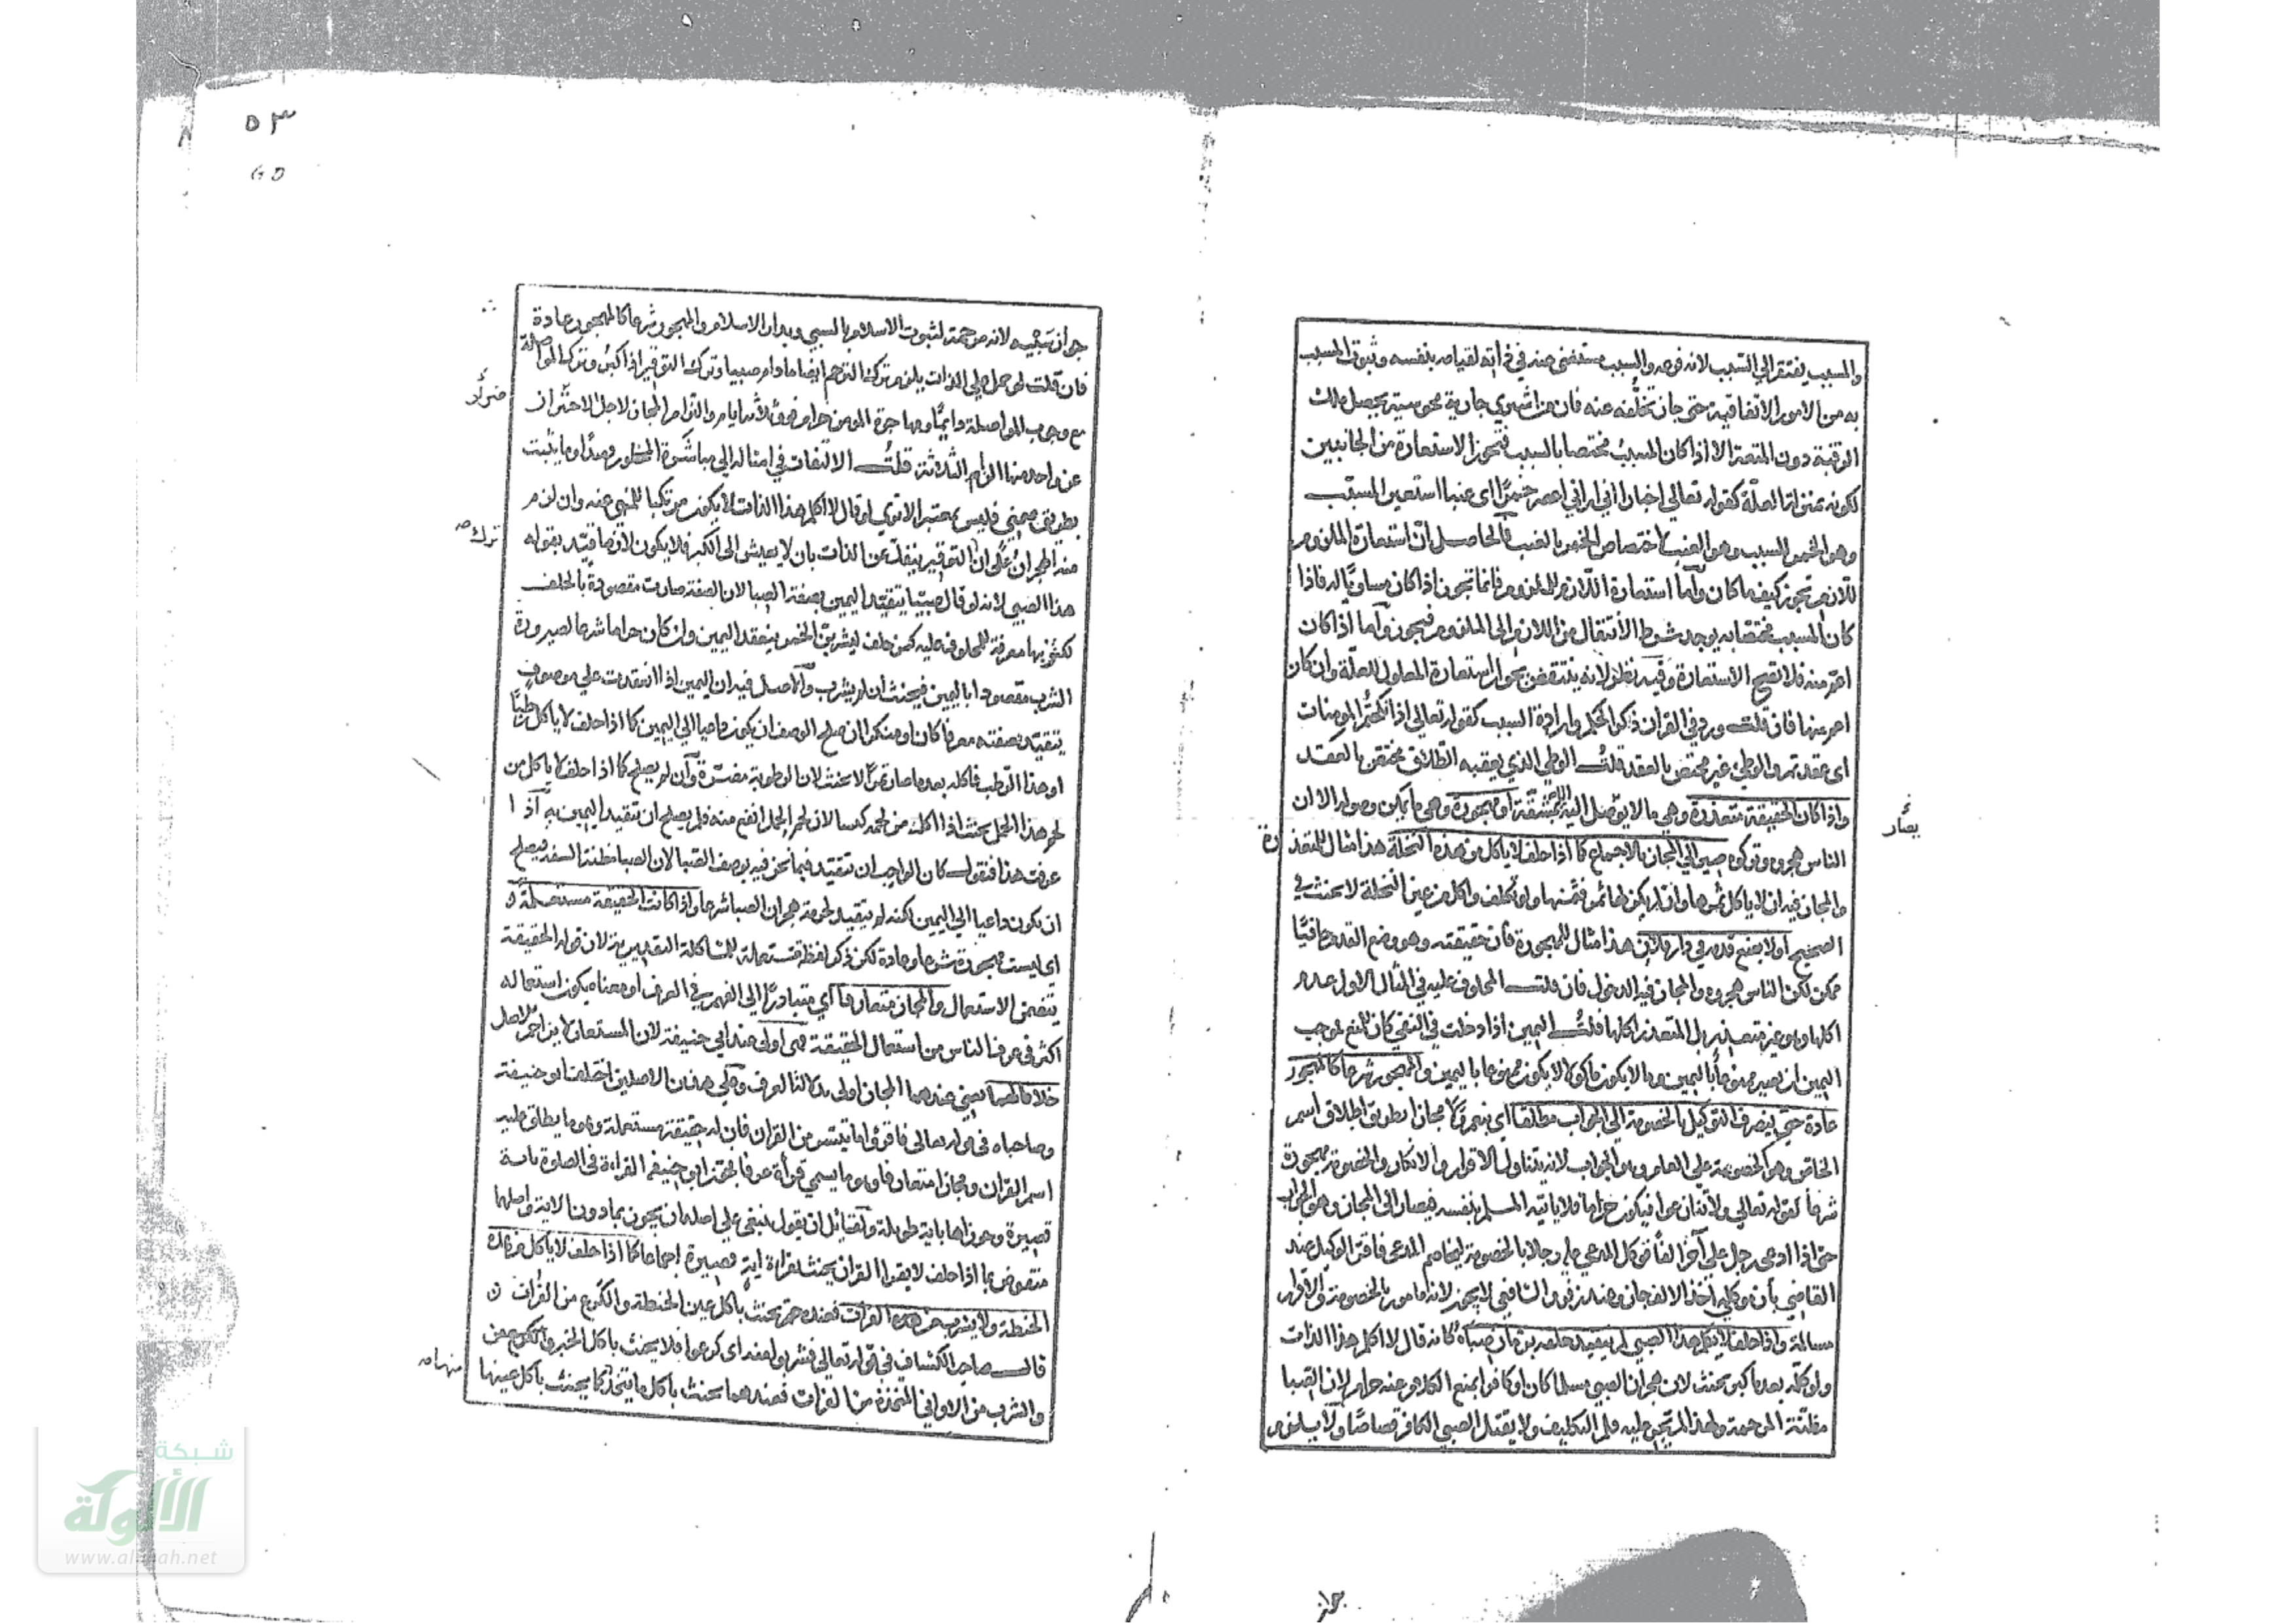 والمسبب يفتقر الي السبب لانه فرعه والسبب مستغني عنه في ذاته لقيامه بنفسه وثبوت المسبب
به من الامور الاتفاقية حتى جاز تخلّفه عنه فان من اشتري جارية مجوسية يحصل ملك
الرقبة دون المتعة الا اذا كان المسبب مختصا بالسبب فتجوز الاستعارة من الجانبين
لكونه بمنزلة العلة كقوله تعالي اخبارا اني اراني اعصر خمرًا اى عنبا استعير المسبب
وهو الخمر للسبب وهو العنب لاختصاص الخمر بالعنب فالحاصل انّ استعارة الملزوم
للّازم تجوز كيف ما كان وامّا استعارة اللّازم للملزوم فانما تجوز اذا كان مساويًا له فاذا
كان المسبب مختصا به يوجد شرط الانتقال من اللازم الي الملزوم فيجوز وأما اذا كان
اعم منه فلا تصح الاستعارة وفيه نظر لانه ينتقض بجواز استعارة المعلول للعلّة وان كان
اعم منها فان قلت ورد في القران ذكر الحكم وارادة السبب كقوله تعالي اذا نكحتم المومنات
اى عقدتم والوطئ غير مختص بالعقد قلت الوطي الذي يعقبه الطّلاق مختص بالعقد
واذا كان الحقيقة متعذرة وهي ما لا يوصل اليه الا بمشقّة او مهجورة وهي ما يمكن وصوله الا ان
الناس هجروه وتركوه صير الي المجاز بالاجماع كما اذا حلف لا ياكل من هذه النخلة هذا مثال للمتعذ رة
والمجاز فيه ان لا ياكل ثمرها وان لم يكن لها ثمر فثمنها ولو تكلف واكل من عين النخلة لا يحنث في
الصحيح او لا يضع قدمه في دار فلان هذا مثال للمهجورة فان حقيقته وهو وضع القدم حافيًا
ممكن لكن الناس هجروه والمجاز فيه الدخول فان قلت المحلوف عليه في المثال الاول عدم
اكلها وهو غير متعذر بل المتعذر اكلها قلت اليمين اذا دخلت في النفي كان للمنع فموجب
اليمين ان يصير ممنوعا باليمين وما لا يكون ماكولا لا يكون ممنوعا باليمين والمهجور شرعا كالمهجور
عادة حتى ينصرف التوكيل بالخصومة الي الجواب مطلقا اي بنعم ولا مجازا بطريق اطلاق اسم
الخاص وهو الخصومة علي العام وهو الجواب لانه يتناول الاقرار والانكار والخصومة مهجورة
شرعا لقوله تعالي ولا تنازعوا فيكون حراما فلا ياتيه المسلم بنفسه فيصار الى المجاز وهو الجواب
حتى اذا ادعى رجل على آخر الفًا فوكل المدعي عليه رجلا بالخصومة ليخاصم المدعى فاقر الوكيل عند
القاضي بأن موكله أخذ الالف جاز وعند زفر والشافعي لا يجوز لانه مامور بالخصومة لا الاقرار
مسالة واذا حلف لا يكلم هذا الصبي لم يتقيد حلفه بزمان صباه كانه قال لا اكلم هذا الذات
ولو كلّمه بعد ما كبر يحنث لان هجران الصبي مسلما كان او كافرا بمنع الكلام عنه حرام لان الصبا
مظنّة المرحمة ولهذا لم يجر عليه قلم التكليف ولا يقتل الصبي الكافر قصاصًا ولا يلزم
يصار
٥٣
جواز سَبْيِه لانه مرحمة لثبوت الاسلام بالسبي وبدار الاسلام والمهجور شرعا كالمهجور عادة
فان قلت لو حمل علي الذات يلزم ترك الترحم ايضا ما دام صبيا وترك التوقير اذا كبر وترك المواصلة
مع وجوب المواصلة دايمًا ومهاجرة المومن حرام فوق ثلاثة ايام والتزام المجاز لاجل الاحتراز
عن واحد منها الزام الثلاثة قلت الالتفات في امثاله الى مباشرة المحظور قصدًا وما يثبت
بطريق ضمني فليس بمعتبر الا تري لو قال لا اكلم هذا الذات لا يكون مرتكبا للمنهي عنه وان لزم
منه الهجران علي ان التوقير ينفك عن الذات بان لا يعيش الى الكبر فلا يكون لازما قيّد بقوله
هذا الصبي لانه لو قال صبيّا يتقيّد اليمين بصفة الصبا لان الصفة صارت مقصودة بالحلف
لكونها معرفة للمحلوف عليه كمن حلف ليشربنّ الخمر ينعقد اليمين وان كان حراما شرعا لصيرورة
الشرب مقصودا باليمين فيحنث ان لم يشرب والاصل فيه ان اليمين اذا انعقدت علي موصوف
يتقيّد بصفته معرفا كان او منكرا ان صلح الوصف ان يكون داعيا الي اليمين كما اذا حلف لا ياكل رطبًا
او هذا الرّطب فاكله بعد ما صار تمرًا لا يحنث لان الرطوبة مضرّة وان لم يصلح كما اذا حلف لا ياكل من
لحم هذا الحمل يحنث اذا اكله من لحمه كبشا لان لحم الحمل انفع منه فلم يصلح ان تتقيد اليمين به اذ ا
عرفت هذا فنقول كان الواجب ان تتقيد فيما نحن فيه بوصف الصبا لان الصبا مظنة السفه فيصلح
ان يكون داعيا الي اليمين لكنه لم يتقيد لحرمة هجران الصبا شرعا واذا كانت الحقيقة مستعملة
اي ليست مهجورة شرعا وعادة لكن ذكر لفظة مستعملة للمشاكلة التقديرية لان قوله الحقيقة
يتضمن الاستعمال والمجاز متعارفا اي متبادرًا الي الفهم في العرف او معناه يكون استعماله
اكثر في عرف الناس من استعمال الحقيقة فهي اولى عند ابي حنيفة لان المستعار لا يزاحم الاصل
خلافا لهما يعني عندهما المجاز اولى بدلالة العرف وعلي هذان الاصلين اختلف ابو حنيفة
وصاحباه في قوله تعالى فاقرؤا ما تيسر من القران فان له حقيقة مستعملة وهو ما يطلق عليه
اسم القران ومجازا متعارفا وهو ما يسمي قرأة عرفا فجوز ابو حنيفه القراءة في الصلوة باية
قصيرة وجوزاها باية طويلة ولقائل ان يقول ينبغي علي اصله ان يجوز بما دون الاية واصلهما
منقوض بما اذا حلف لا يقرا القران يحنث بقراءة اية قصيرة اجماعا كما اذا حلف لا ياكل من هذه
الحنطة ولا يشرب من هذه الفرات فعنده حتى يحنث باكل عين الحنطة والكرع من الفرات
قال صاحب الكشاف في قوله تعالي فشربوا منه اى كرعوا فلا يحنث باكل الخبز
والشرب من الاواني المتخذة من الفرات فعندهما يحنث باكل ما يتخذ كما يحنث باكل عينها
ترك صح
منها صح
شبكة
الألوكة
www.alukah.net